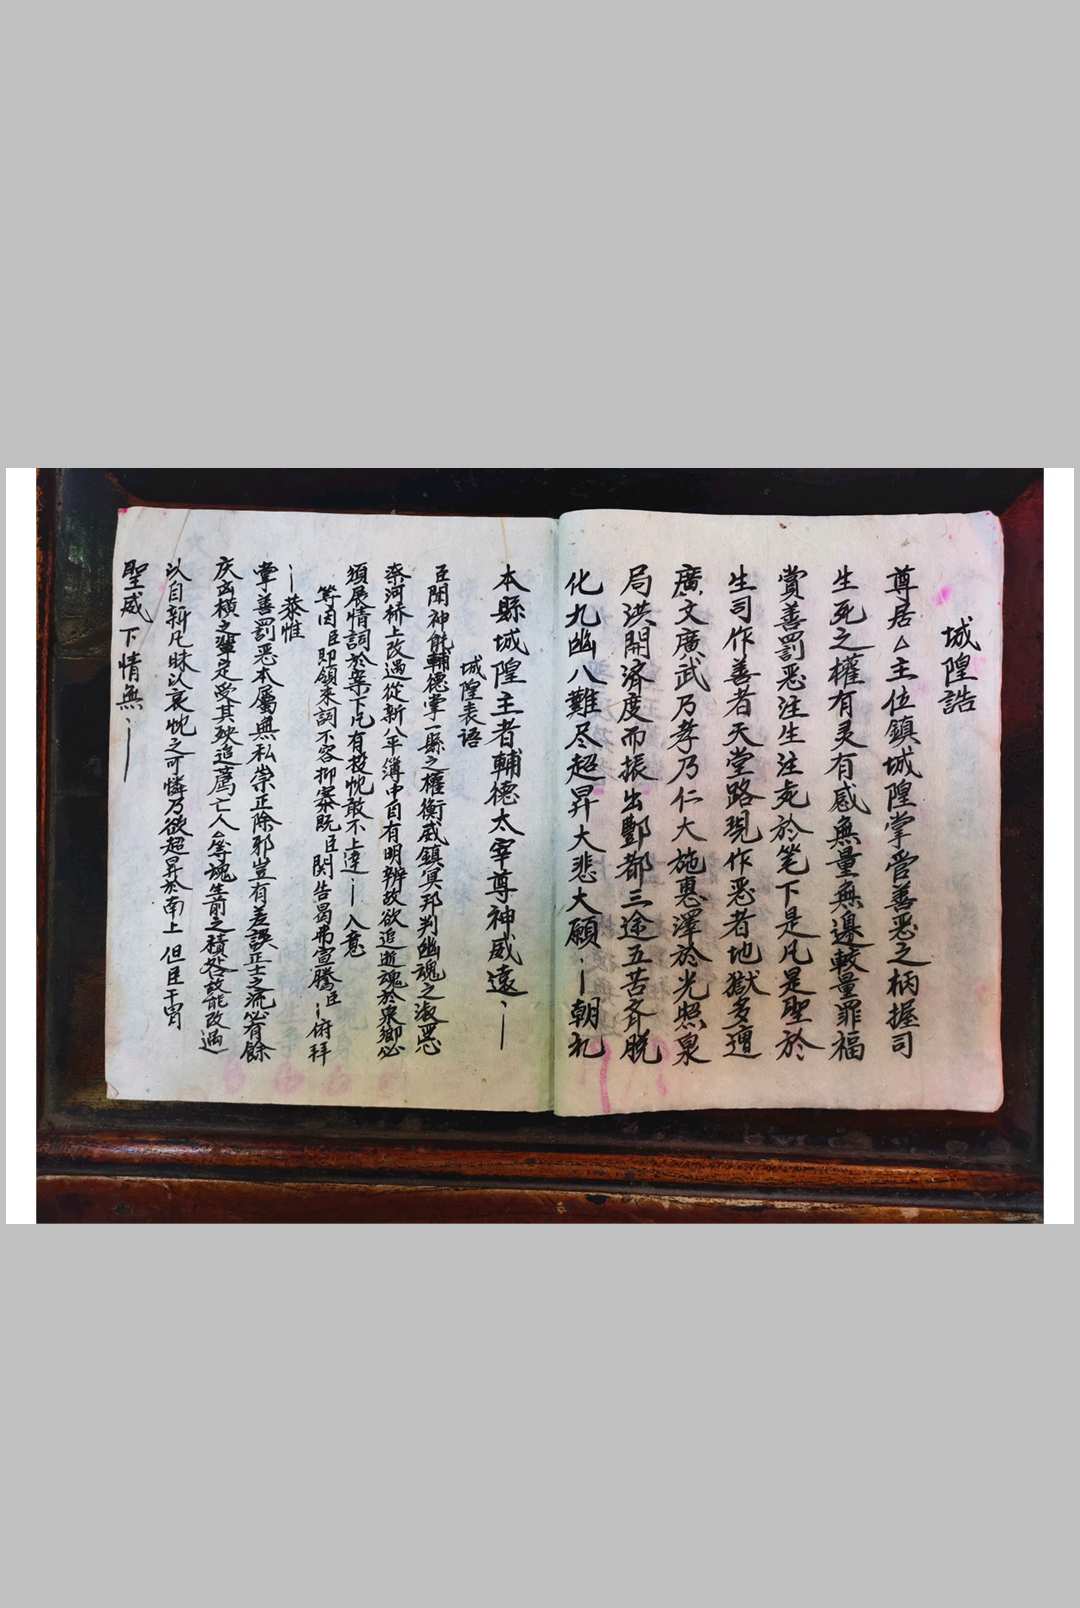 城隍誥
尊居△主位鎮城隍掌管善惡之柄握司
生死之權有灵有感無量無邊較量罪福
賞善罰惡注生注死於笔下是凡是聖於
生司作善者天堂路現作惡者地獄多遭
廣文廣武乃孝乃仁大施惠澤於光照泉
局洪開济度而振出酆都三途五苦齐脱
化九幽八難尽超昇大悲大願〻朝礼
本縣城隍主者輔德太宰尊神威遠〻
城隍表语
臣聞神能輔德掌一縣之權衡威鎮冥邦判幽魂之淑惡
奈河桥上改過從新八平簿中自有明辨故欲追逝魂於泉鄉必
須展情詞於案下凢有投忱敢不上達〻入意
等因臣即領來詞不容抑寨既臣関告曷弗宣騰臣〻俯拜
〻恭惟
掌善罰恶本属無私崇正除邪豈有差誤正士之流必有餘
庆凶横之輩定受其殃追薦亡人△等魂生前之積咎故能改過
以自新凡昧以哀忱之可憐乃欲超昇於南上 但臣干冐
聖威下情無〻